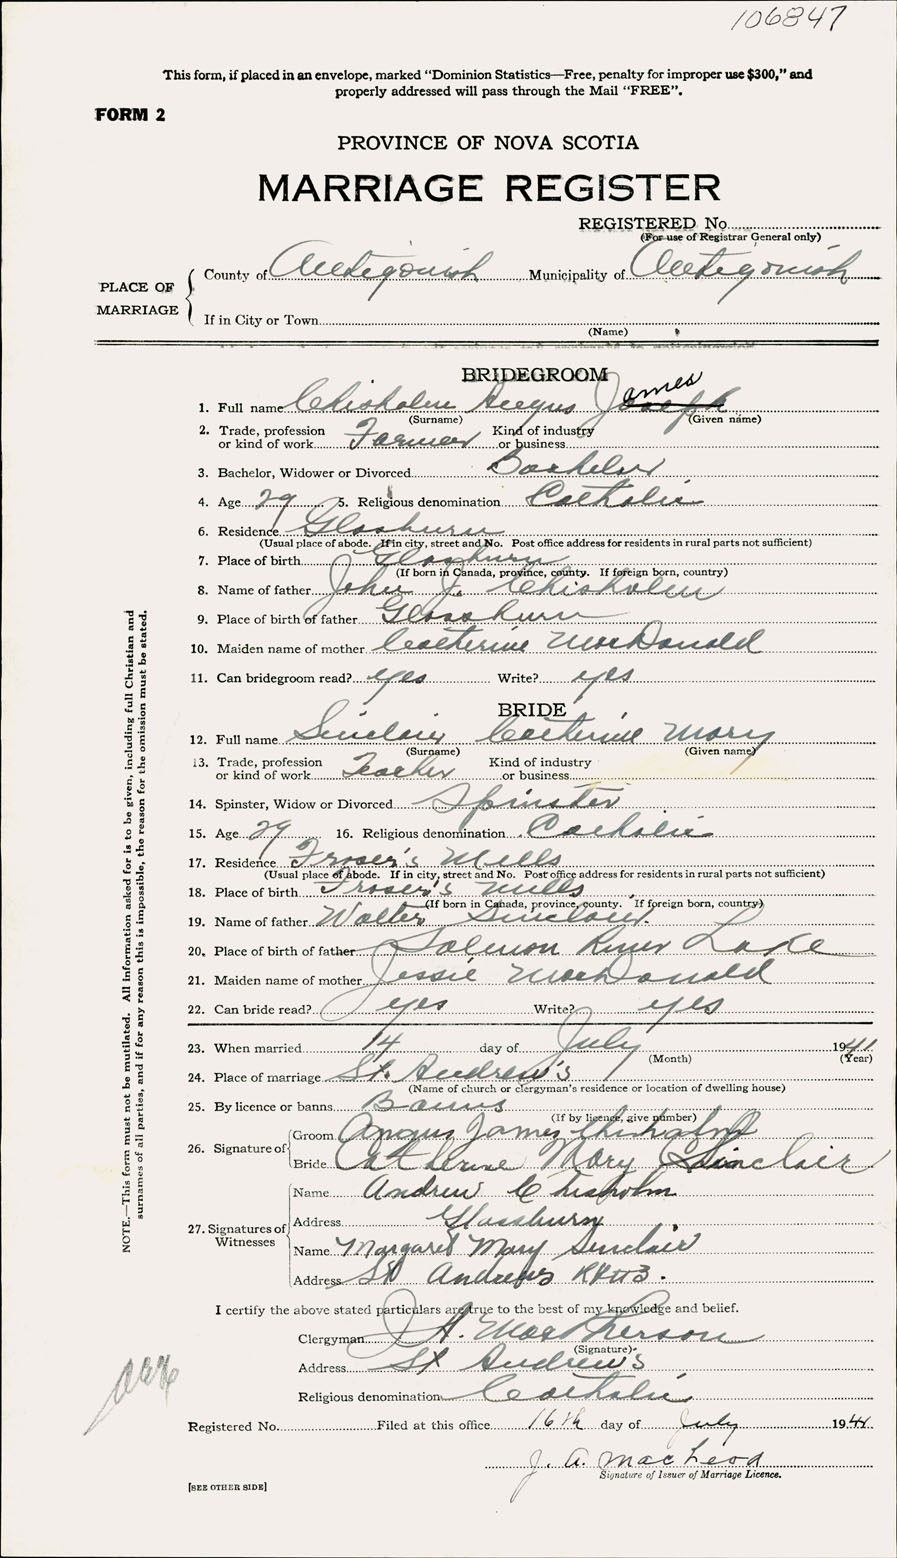 106847
This form, if placed in an envelope, marked "Dominion Statistics—Free, penalty for improper use $300," and
properly addressed will pass through the Mail "FREE".
FORM 2
PROVINCE OF NOVA SCOTIA
MARRIAGE REGISTER
REGISTERED No.
(For use of Registrar General only)
PLACE OF MARRIAGE
County of Antigonish Municipality of Antigonish
If in City or Town
(Name)
BRIDEGROOM
1. Full name Chisholm Angus James Joseph
(Surname) (Given name)
2. Trade, profession or kind of work Farmer Kind of industry or business
3. Bachelor, Widower or Divorced Bachelor
4. Age 29 5. Religious denomination Catholic
6. Residence Glassburn
(Usual place of abode. If in city, street and No. Post office address for residents in rural parts not sufficient)
7. Place of birth Glassburn
(If born in Canada, province, county. If foreign born, country)
8. Name of father John J. Chisholm
9. Place of birth of father Glassburn
10. Maiden name of mother Catherine MacDonald
11. Can bridegroom read? yes Write? yes
BRIDE
12. Full name Sinclair Catherine Mary
(Surname) (Given name)
13. Trade, profession or kind of work Teacher Kind of industry or business
14. Spinster, Widow or Divorced Spinster
15. Age 29 16. Religious denomination Catholic
17. Residence Fraser's Mills
(Usual place of abode. If in city, street and No. Post office address for residents in rural parts not sufficient)
18. Place of birth Fraser's Mills
(If born in Canada, province, county. If foreign born, country)
19. Name of father Walter Sinclair
20. Place of birth of father Salmon River Lake
21. Maiden name of mother Jessie MacDonald
22. Can bride read? yes Write? yes
23. When married 14 day of July 1941
(Month) (Year)
24. Place of marriage St. Andrew's
(Name of church or clergyman's residence or location of dwelling house)
25. By licence or banns Banns
(If by licence, give number)
26. Signature of
Groom Angus James Chisholm
Bride Catherine Mary Sinclair
27. Signatures of Witnesses
Name Andrew Chisholm
Address Glassburn
Name Margaret Mary Sinclair
Address St Andrews RR#3.
I certify the above stated particulars are true to the best of my knowledge and belief.
Clergyman MacPherson
(Signature)
Address St Andrew's
Religious denomination Catholic
Registered No. Filed at this office 16th day of July 1941
J. A. MacLeod
Signature of Issuer of Marriage Licence.
[SEE OTHER SIDE]
NOTE.—This form must not be mutilated. All information asked for is to be given, including full Christian and
surnames of all parties, and if for any reason this is impossible, the reason for the omission must be stated.